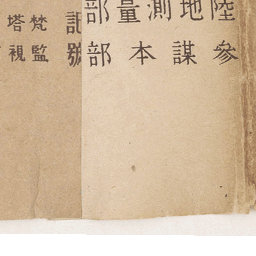 陸地測量部
參謀本部
記號
梵塔
監視